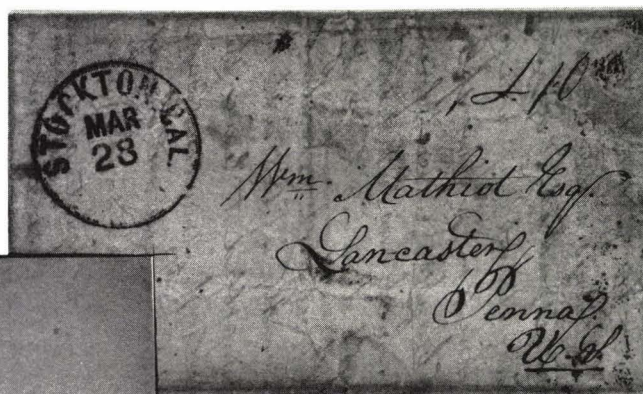 STOCKTON CAL.
MAR
28
Wm. Mathiot Esq.
Lancaster
Penna
U.S.